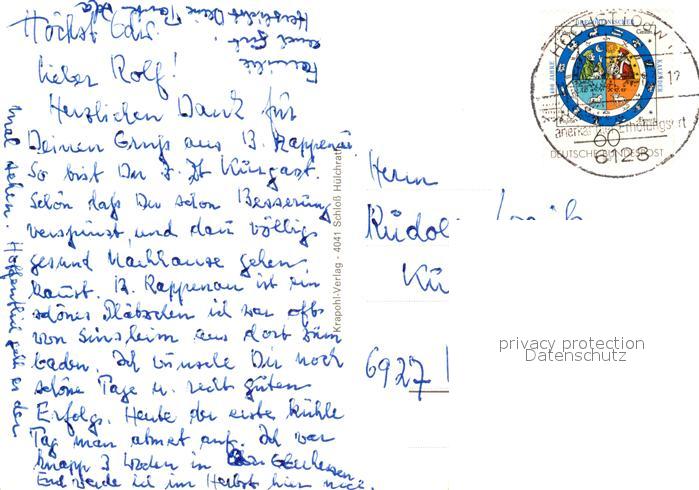 Höchst Odw.
lieber Rolf!
Herzlichen Dank für
Deinen Gruß aus B. Rappenau
So bist Du z. Zt Kurgast.
Schön daß Du schon Besserung
verspürst, und dann völlig
gesund Nachhause gehen
kannst. B. Rappenau ist ein
schönes Plätzchen ich war oft
von Sinsheim aus dort zum
baden. Ich wünsche Dir noch
schöne Tage u. recht guten
Erfolg. Heute der erste kühle
Tag man atmet auf. Ich war
knapp 3 Wochen in
End werde ich im Herbst hier
mal sehen. Hoffentlich geht es der
Familie
auch gut.
Herzlichst Deine Tante
Krapohl-Verlag - 4041 Schloß Hülchrath
Herrn
Rudol
Kü
6927
400 JAHRE GREGORIANISCHER KALENDER
60
DEUTSCHE BUNDESPOST
HÖCHST, ODW
anerkannter Erholungsort
6128
privacy protection
Datenschutz